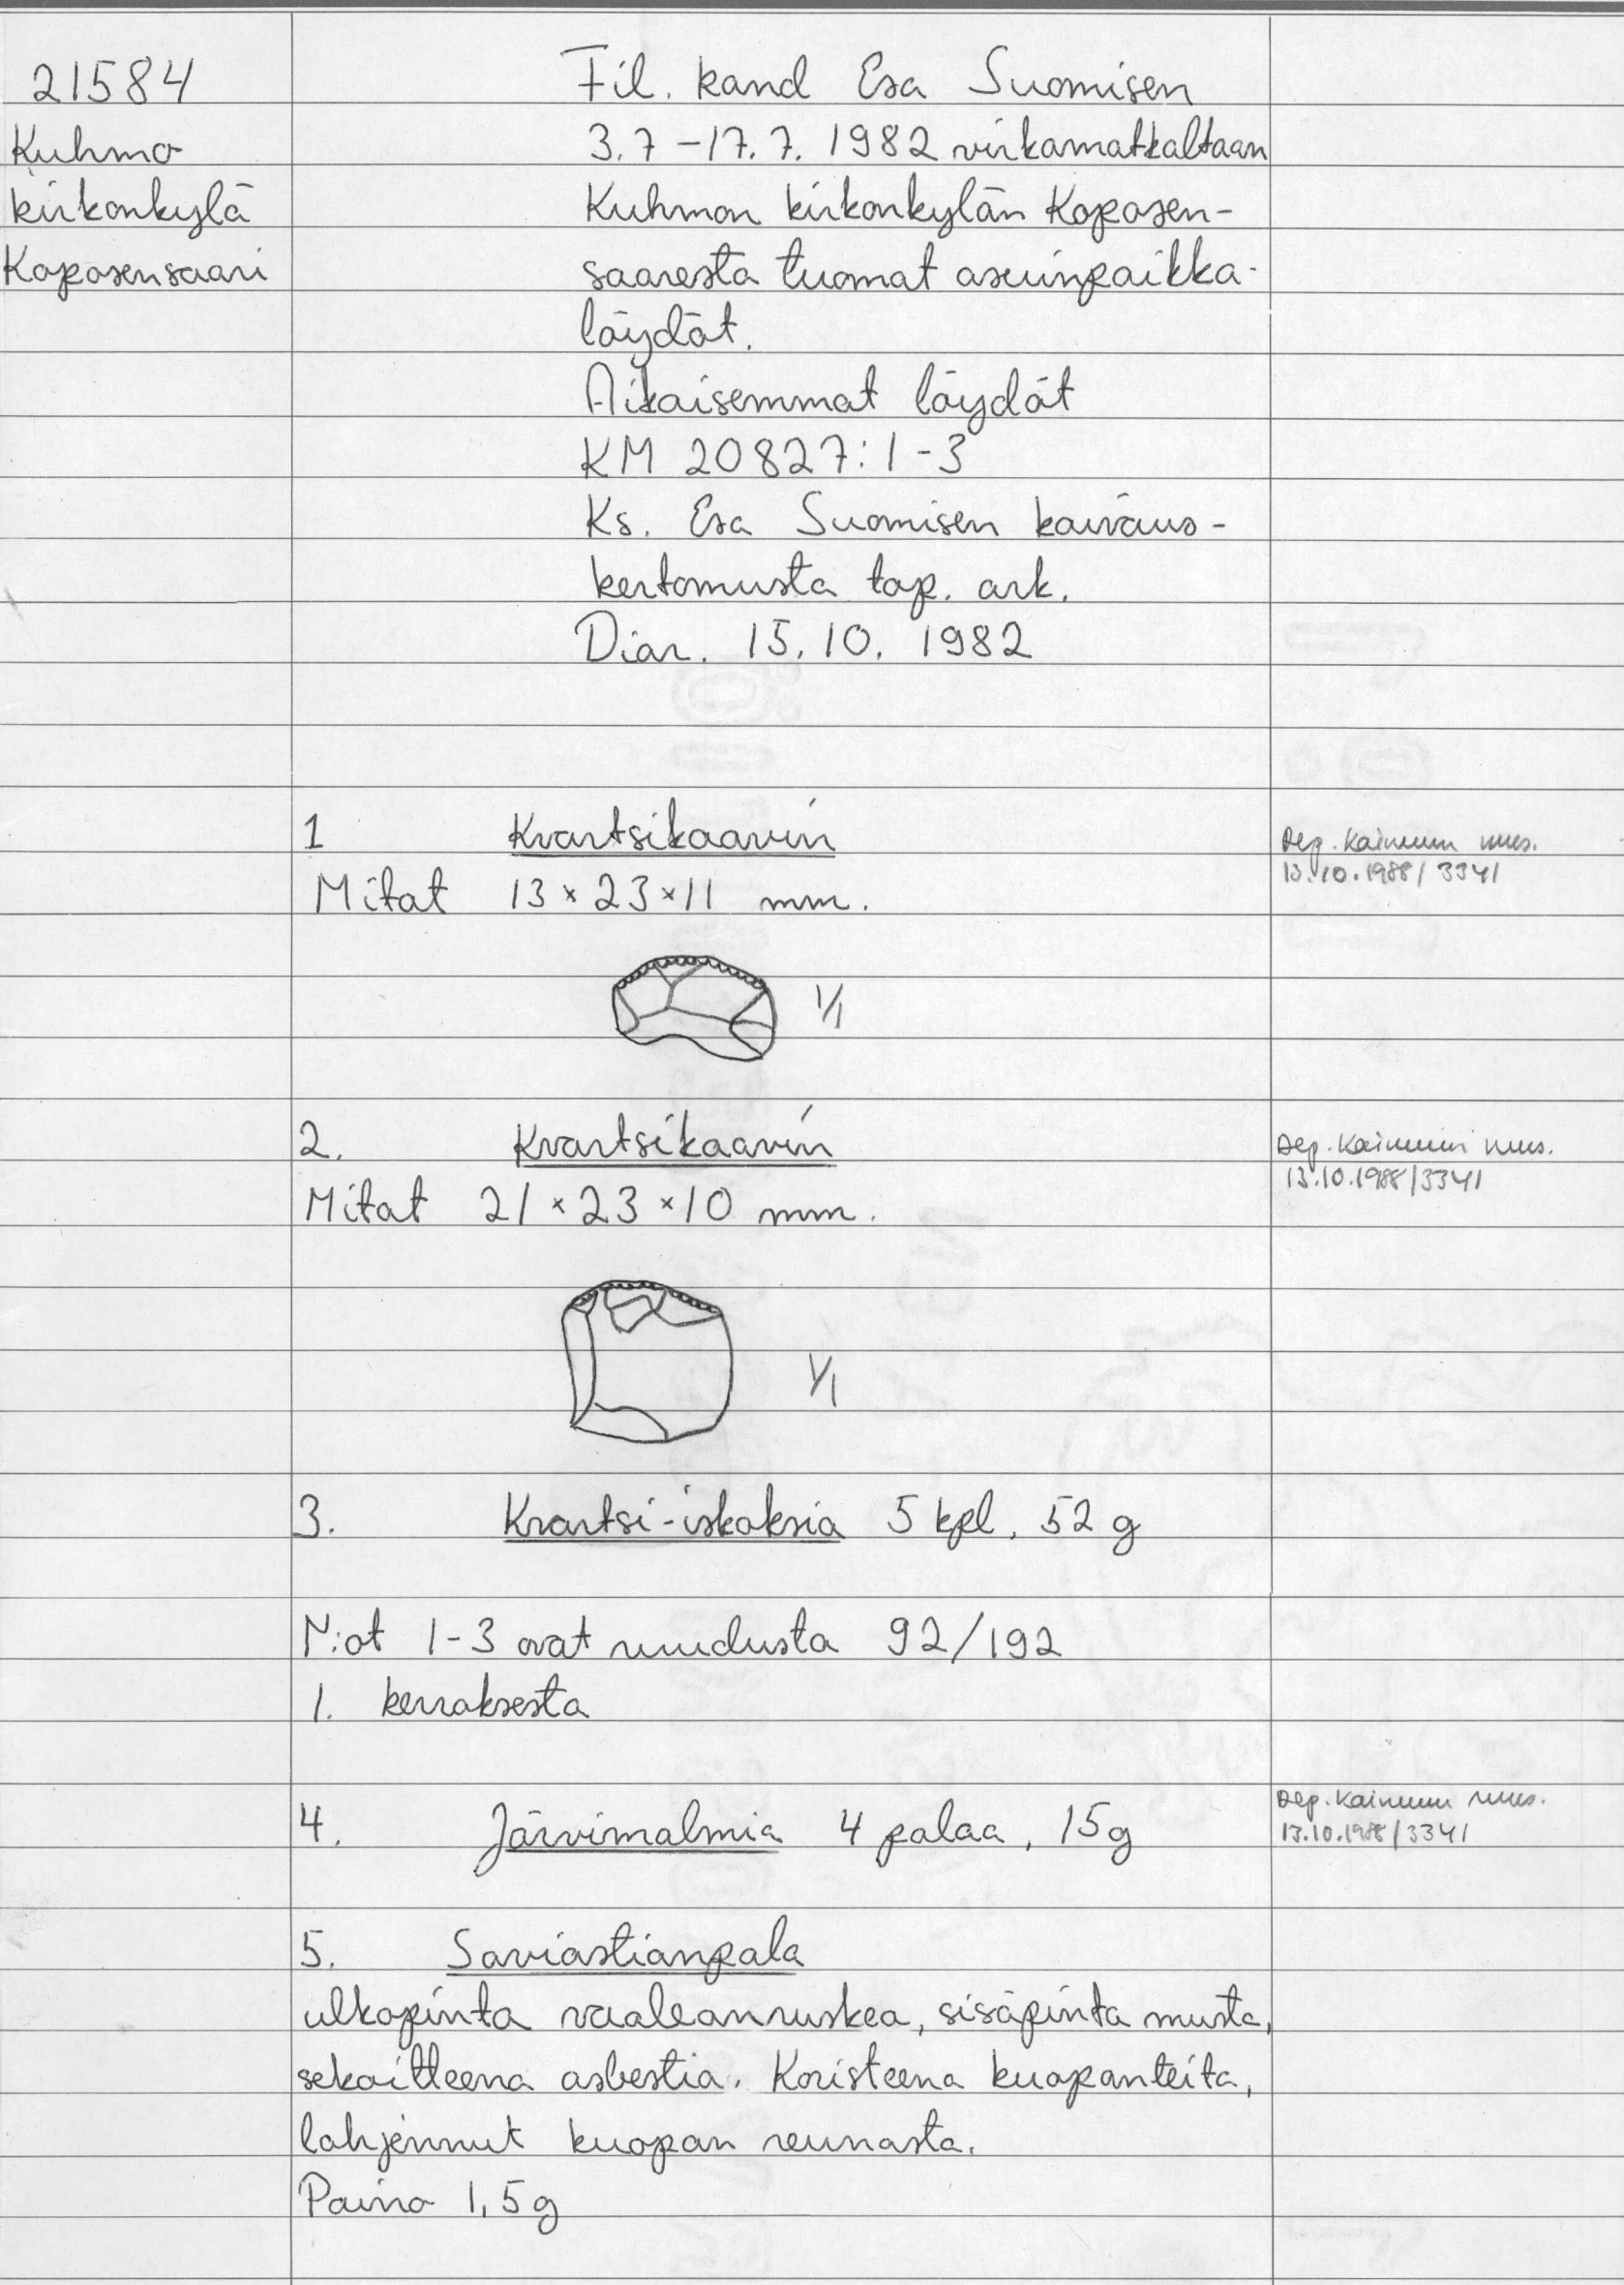 21584
Kuhmo
kirkonkylä
Koposensaari
Fil. kand Esa Suomisen
3.7 – 17.7. 1982 virkamatkaltaan
Kuhmon kirkonkylän Koposen-
saaresta tuomat asuinpaikka-
löydöt.
Aikaisemmat löydöt
KM 20827:1-3
Ks. Esa Suomisen kaivaus-
kertomusta top. ark.
Diar. 15.10. 1982
1 Kvartsikaavin
Mitat 13 × 23 × 11 mm.
Dep. Kainuun mus.
13.10.1988/3341
1/1
2. Kvartsikaavin
Mitat 21 × 23 × 10 mm.
Dep. Kainuun mus.
13.10.1988/3341
1/1
3. Kvartsi-iskoksia 5 kpl, 52 g
N:ot 1-3 ovat ruudusta 92/192
1. kerroksesta
4. Järvimalmia 4 palaa, 15g
Dep. Kainuun mus.
13.10.1988/3341
5. Saviastianpala
ulkopinta vaaleanruskea, sisäpinta musta,
sekoitteena asbestia. Koristeena kuopanteita,
lohjennut kuopan reunasta.
Paino 1,5g